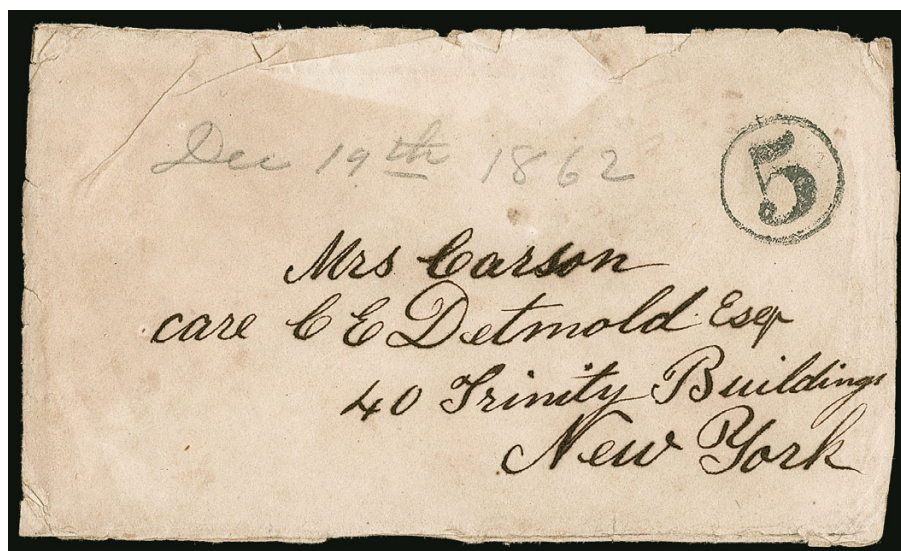 Dec 19th 1862
5
Mrs Carson
care C E Detmold Esqr
40 Trinity Buildings
New York